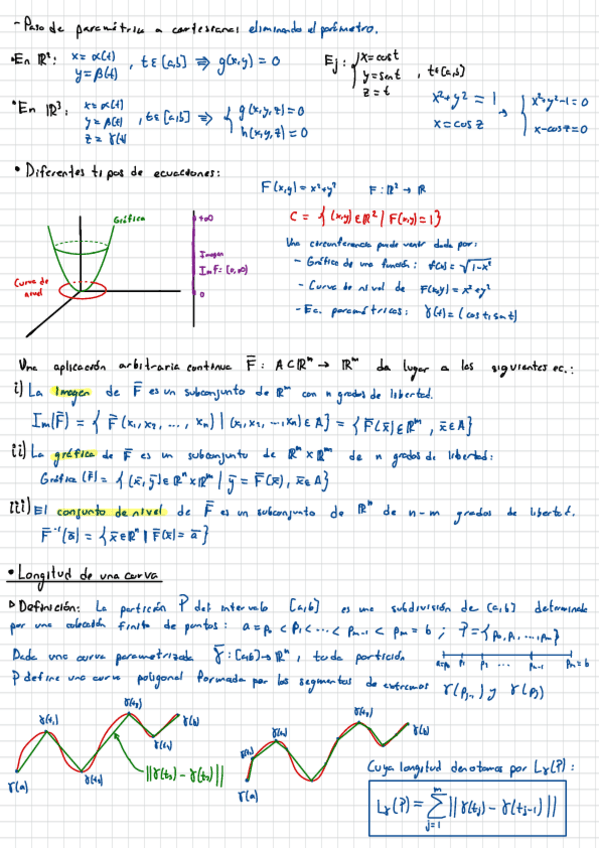 - Paso de paramétrica a cartesianas eliminando el parámetro.
• En ℝ²: x = α(t)
y = β(t) , t∈[a,b] ⇒ g(x,y) = 0
Ej: { x = cost
y = sent , t∈[a,b]
z = t
• En ℝ³: x = α(t)
y = β(t) , t∈[a,b] ⇒ { g(x,y,z) = 0
z = γ(t) h(x,y,z) = 0
x² + y² = 1 → { x²+y²-1 = 0
x = cos z x - cos z = 0
• Diferentes tipos de ecuaciones:
F(x,y) = x² + y² F: ℝ² → ℝ
C = { (x,y) ∈ ℝ² | F(x,y) = 1 }
Gráfica
+∞
Imagen
Im F: [0,∞)
0
Curva de
nivel
Una circunferencia puede venir dada por:
- Gráfica de una función: f(x) = √1-x²
- Curva de nivel de F(x,y) = x² + y²
- Ec. paramétricas: γ(t) = (cos t, sin t)
Una aplicación arbitraria continua F̄: A⊂ℝⁿ → ℝᵐ da lugar a las siguientes ec.:
i) La imagen de F̄ es un subconjunto de ℝᵐ con n grados de libertad.
Im(F̄) = { F̄(x₁, x₂, ..., xₙ) | (x₁, x₂, ..., xₙ) ∈ A } = { F̄(x̄) ∈ ℝᵐ, x̄ ∈ A }
ii) La gráfica de F̄ es un subconjunto de ℝⁿ × ℝᵐ de n grados de libertad:
Gráfica (F̄) = { (x̄, ȳ) ∈ ℝⁿ × ℝᵐ | ȳ = F̄(x̄), x̄ ∈ A }
iii) El conjunto de nivel de F̄ es un subconjunto de ℝⁿ de n-m grados de libertad.
F̄⁻¹(ā) = { x̄ ∈ ℝⁿ | F̄(x̄) = ā }
• Longitud de una curva
▷ Definición: La partición P del intervalo [a,b] es una subdivisión de [a,b] determinada
por una colección finita de puntos: a = p₀ < p₁ < ... < pₘ₋₁ < pₘ = b ; P = { p₀, p₁, ..., pₘ }
Dada una curva parametrizada γ̄: [a,b] → ℝⁿ, toda partición
a=p₀ p₁ p₂ ... pₘ₋₁ pₘ = b
P define una curva poligonal formada por los segmentos de extremos γ(pⱼ₋₁) y γ(pⱼ)
γ(a) γ(t₁) γ(t₂) γ(t₃) γ(t₄) γ(b)
||γ(t₃) - γ(t₂)||
γ(a) γ(t₁) γ(t₃) γ(b)
Cuya longitud denotamos por Lγ(P):
Lγ(P) = ∑ᵐⱼ₌₁ || γ(tⱼ) - γ(tⱼ₋₁) ||